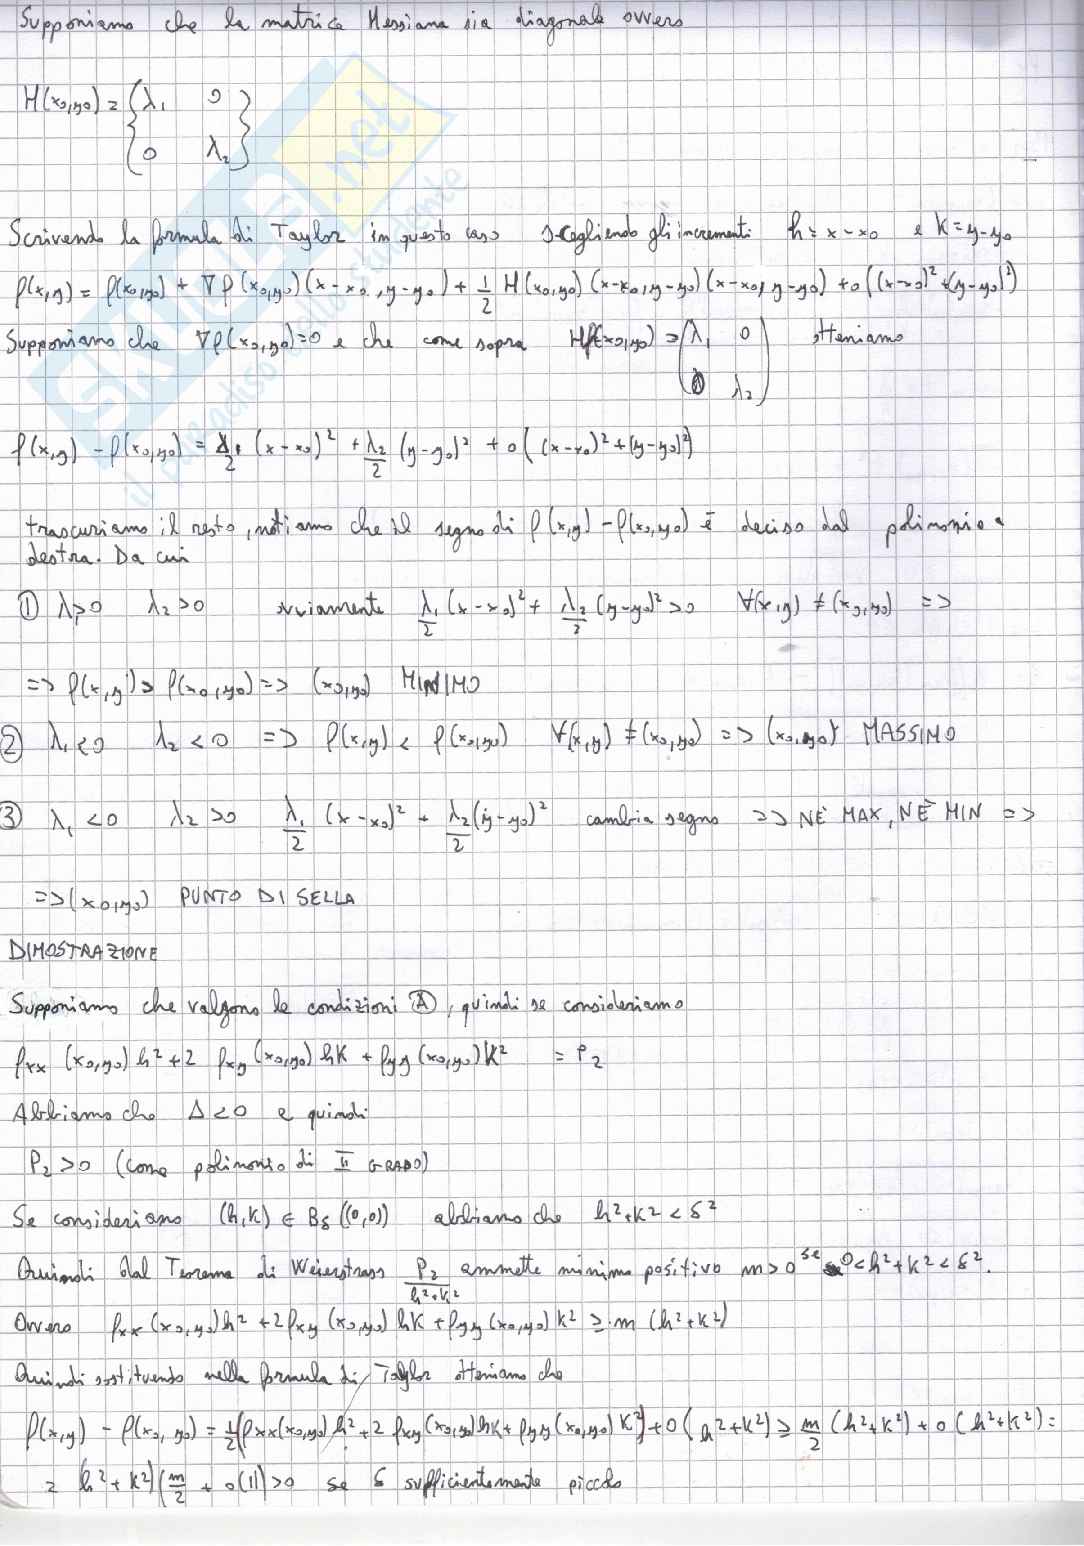 Supponiamo che la matrice Hessiana sia diagonale ovvero
H(x₀,y₀) = (λ₁ 0
0 λ₂)
Scrivendo la formula di Taylor in questo caso scegliendo gli incrementi h = x-x₀ e k = y-y₀
f(x,y) = f(x₀,y₀) + ∇f(x₀,y₀)(x-x₀, y-y₀) + 1/2 H(x₀,y₀)(x-x₀,y-y₀)(x-x₀, y-y₀) + o((x-x₀)²+(y-y₀)²)
Supponiamo che ∇f(x₀,y₀)=0 e che come sopra Hf(x₀,y₀) = (λ₁ 0 otteniamo
0 λ₂)
f(x,y) - f(x₀,y₀) = λ₁/2 (x-x₀)² + λ₂/2 (y-y₀)² + o((x-x₀)²+(y-y₀)²)
trascuriamo il resto, notiamo che il segno di f(x,y) - f(x₀,y₀) è deciso dal polinomio a
destra. Da cui
① λ₁>0 λ₂>0 ovviamente λ₁/2 (x-x₀)² + λ₂/2 (y-y₀)² >0 ∀(x,y) ≠ (x₀,y₀) =>
=> f(x,y) > f(x₀,y₀) => (x₀,y₀) MINIMO
② λ₁<0 λ₂<0 => f(x,y) < f(x₀,y₀) ∀(x,y) ≠ (x₀,y₀) => (x₀,y₀) MASSIMO
③ λ₁<0 λ₂>0 λ₁/2 (x-x₀)² + λ₂/2 (y-y₀)² cambia segno => NÈ MAX, NÈ MIN =>
=> (x₀,y₀) PUNTO DI SELLA
DIMOSTRAZIONE
Supponiamo che valgono le condizioni Ⓐ, quindi se consideriamo
fxx (x₀,y₀) h² + 2 fxy (x₀,y₀) hk + fyy (x₀,y₀) k² = P₂
Abbiamo che Δ<0 e quindi
P₂ >0 (come polinomio di II GRADO)
Se consideriamo (h,k) ∈ Bδ((0,0)) abbiamo che h²+k² < δ²
Quindi dal Teorema di Weierstrass P₂/(h²+k²) ammette minimo positivo m>0 se 0<h²+k²<δ².
Ovvero fxx (x₀,y₀)h² + 2fxy (x₀,y₀) hk + fyy (x₀,y₀) k² ≥ m (h²+k²)
Quindi sostituendo nella formula di Taylor otteniamo che
f(x,y) - f(x₀,y₀) = 1/2(fxx(x₀,y₀) h² + 2 fxy(x₀,y₀)hk + fyy(x₀,y₀) k²) + o(h²+k²) ≥ m/2 (h²+k²) + o(h²+k²) =
= (h²+k²)(m/2 + o(1)) >0 se δ sufficientemente piccolo
SKUOLA.net
il paradiso dello studente